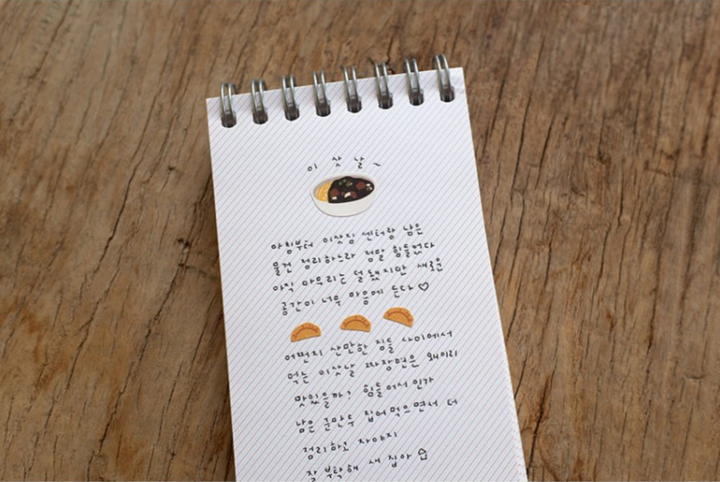 이삿날~
아침부터 이삿짐 센터랑 남은
물건 정리하느라 정말 힘들었다
아직 마무리는 덜 됐지만 새로운
공간이 너무 마음에 든다♡
어쩐지 산만한 짐들 사이에서
먹는 이삿날 짜장면은 왜이리
맛있을까? 힘들어서 인가
남은 군만두 집어먹으면서 더
정리하고 자야지
잘 부탁해 새 집아